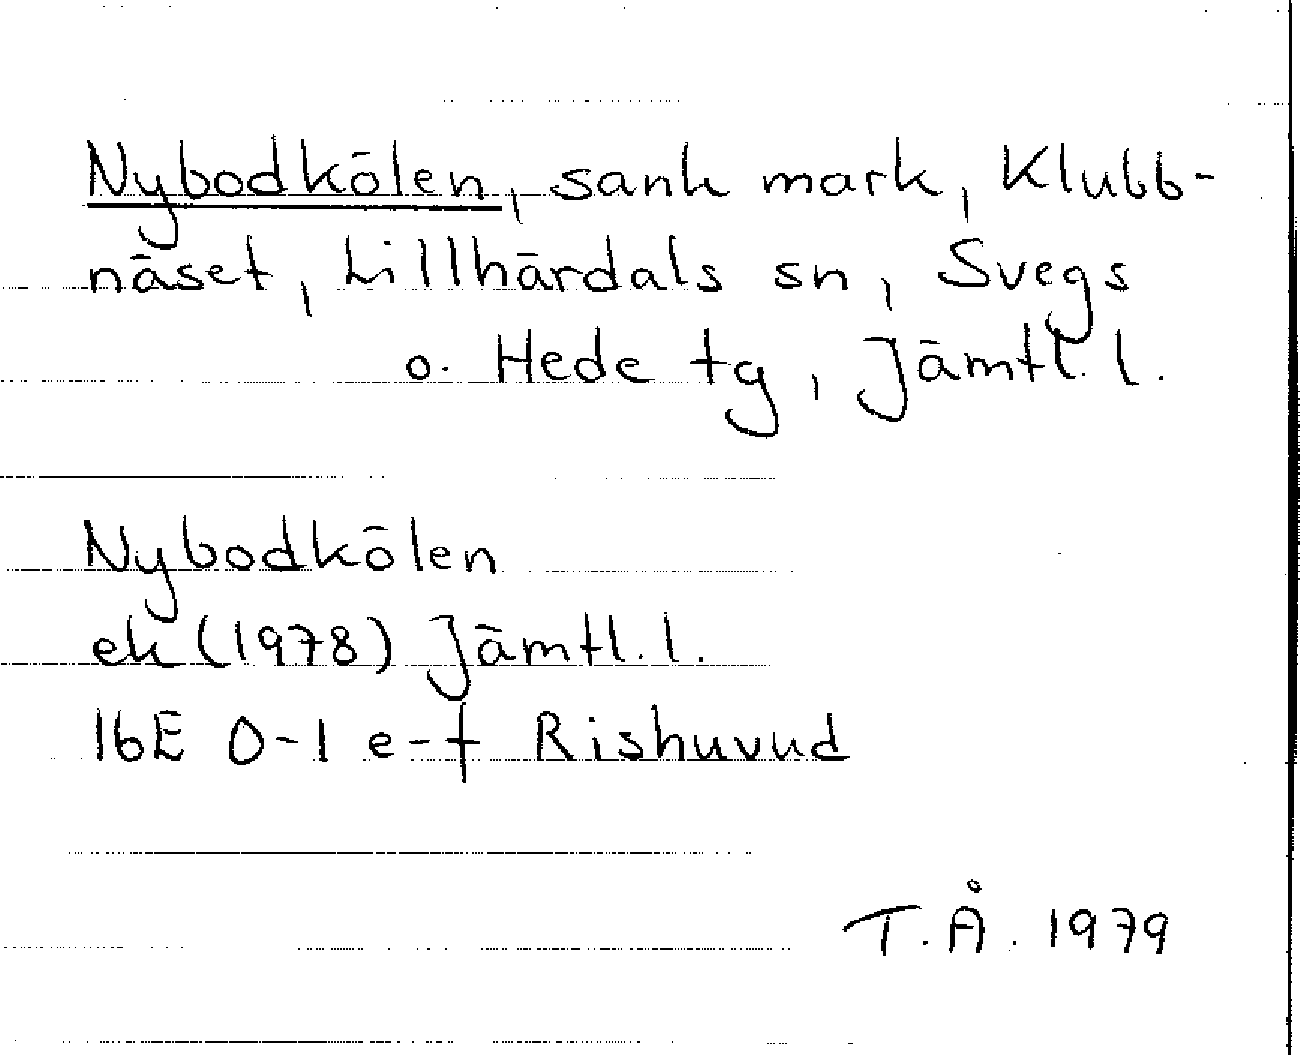 Nybodkölen, sank mark, Klubb-
näset, Lillhärdals sn, Svegs
o. Hede tg, Jämtl. l.
Nybodkölen
ek (1978) Jämtl. l.
16E 0-1 e-f Rishuvud
T.Å. 1979